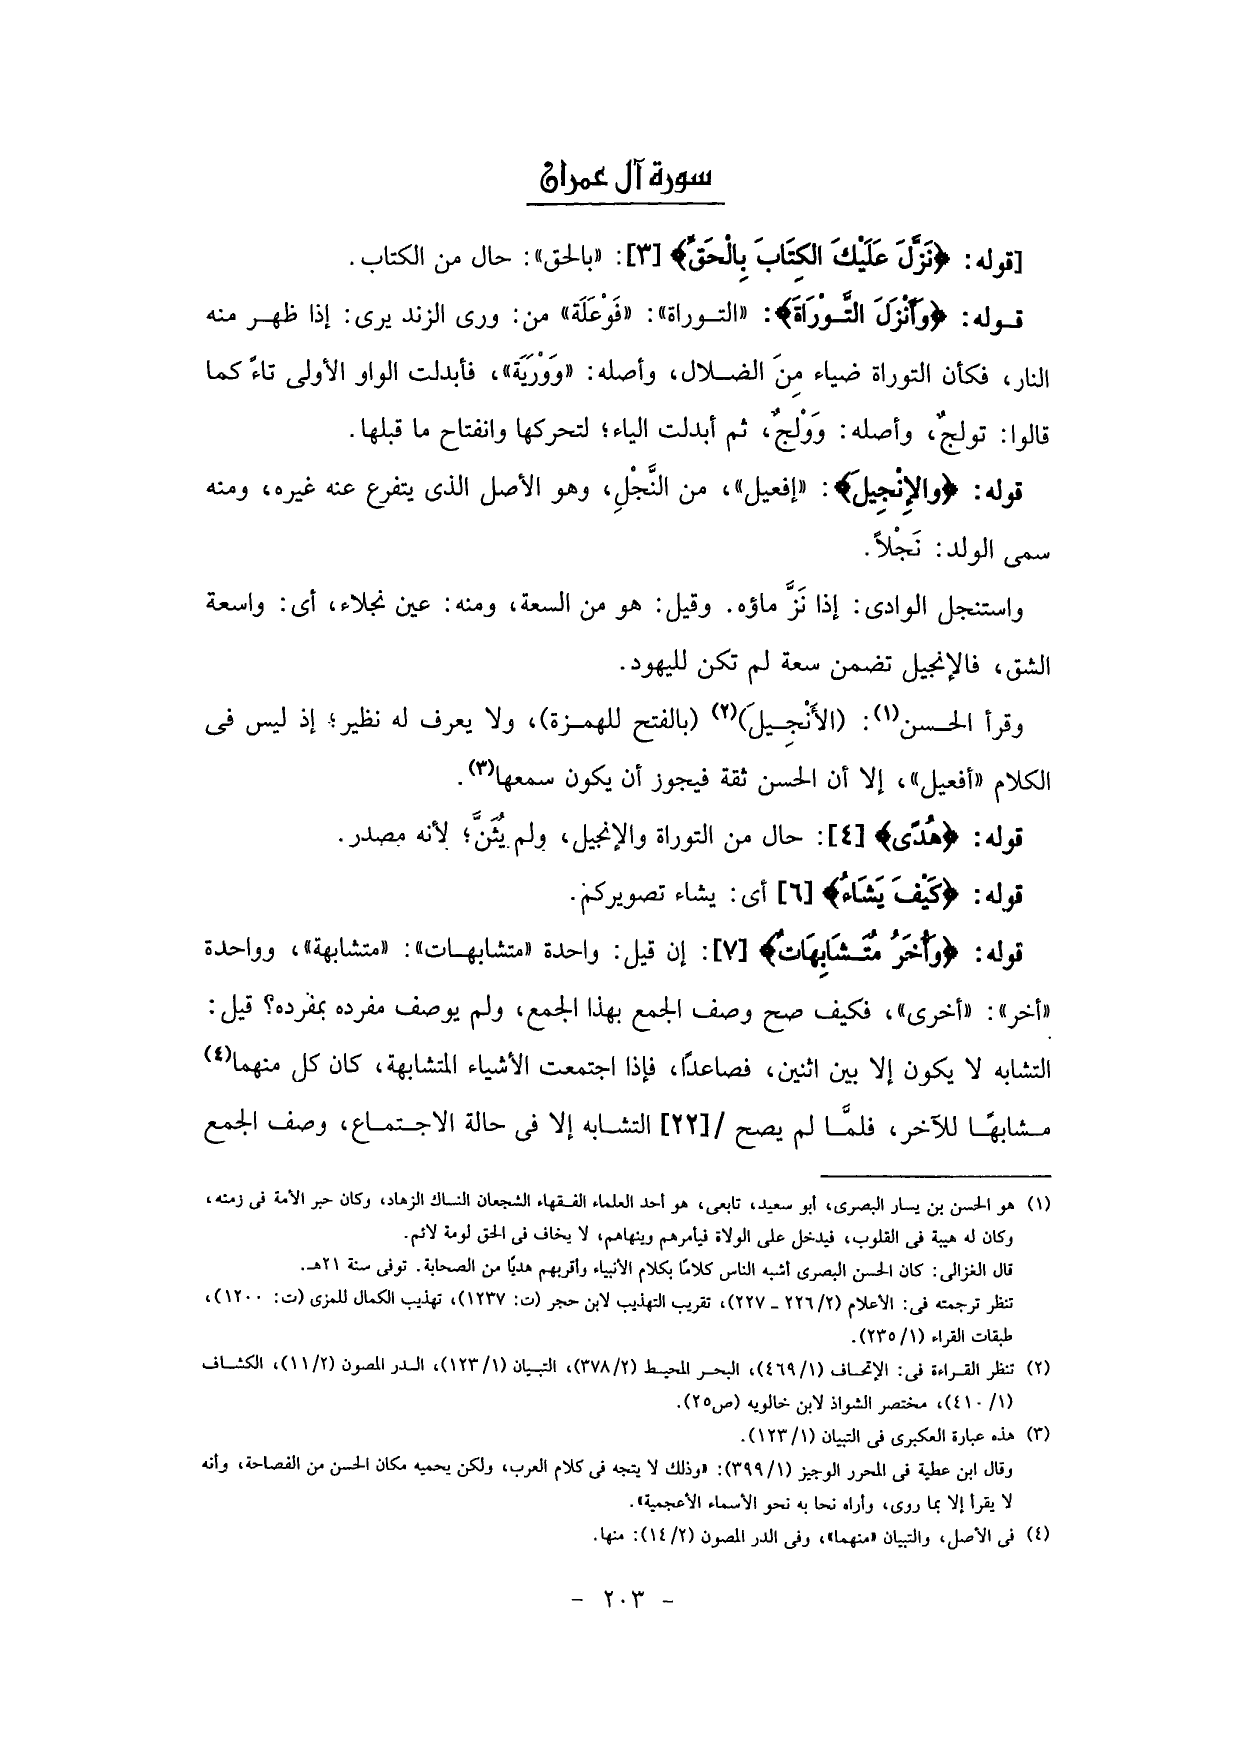 سورة آل عمران
[قوله: ﴿نَزَّلَ عَلَيْكَ الكِتَابَ بِالْحَقِّ﴾ [٣]: «بالحق»: حال من الكتاب.
قوله: ﴿وَأَنْزَلَ التَّوْرَاةَ﴾: «التوراة»: «فَوْعَلَة» من: ورى الزند يرى: إذا ظهر منه
النار، فكأن التوراة ضياء مِنَ الضلال، وأصله: «وَوْرَيَة»، فأبدلت الواو الأولى تاءً كما
قالوا: تولجٌ، وأصله: وَوْلجٌ، ثم أبدلت الياء؛ لتحركها وانفتاح ما قبلها.
قوله: ﴿والإِنْجِيلَ﴾: «إفعيل»، من النَّجْلِ، وهو الأصل الذى يتفرع عنه غيره، ومنه
سمى الولد: نَجْلاً.
واستنجل الوادى: إذا نَزَّ ماؤه. وقيل: هو من السعة، ومنه: عين نجلاء، أى: واسعة
الشق، فالإنجيل تضمن سعة لم تكن لليهود.
وقرأ الحسن(١): (الأَنْجِيلَ)(٢) (بالفتح للهمزة)، ولا يعرف له نظير؛ إذ ليس فى
الكلام «أفعيل»، إلا أن الحسن ثقة فيجوز أن يكون سمعها(٣).
قوله: ﴿هُدًى﴾ [٤]: حال من التوراة والإنجيل، ولم يُثَنَّ؛ لأنه مصدر.
قوله: ﴿كَيْفَ يَشَاءُ﴾ [٦] أى: يشاء تصويركم.
قوله: ﴿وَأُخَرُ مُتَشَابِهَاتٌ﴾ [٧]: إن قيل: واحدة «متشابهات»: «متشابهة»، وواحدة
«أخر»: «أخرى»، فكيف صح وصف الجمع بهذا الجمع، ولم يوصف مفرده بمفرده؟ قيل:
التشابه لا يكون إلا بين اثنين، فصاعدًا، فإذا اجتمعت الأشياء المتشابهة، كان كل منهما(٤)
مشابهًا للآخر، فلمَّا لم يصح /[٢٢] التشابه إلا فى حالة الاجتماع، وصف الجمع
(١) هو الحسن بن يسار البصرى، أبو سعيد، تابعى، هو أحد العلماء الفقهاء الشجعان النساك الزهاد، وكان حبر الأمة فى زمنه،
وكان له هيبة فى القلوب، فيدخل على الولاة فيأمرهم وينهاهم، لا يخاف فى الحق لومة لائم.
قال الغزالى: كان الحسن البصرى أشبه الناس كلامًا بكلام الأنبياء وأقربهم هديًا من الصحابة. توفى سنة ٢١هـ.
تنظر ترجمته فى: الأعلام (٢/ ٢٢٦ ـ ٢٢٧)، تقريب التهذيب لابن حجر (ت: ١٢٣٧)، تهذيب الكمال للمزى (ت: ١٢٠٠)،
طبقات القراء (١/ ٢٣٥).
(٢) تنظر القراءة فى: الإتحاف (١/ ٤٦٩)، البحر المحيط (٢/ ٣٧٨)، التبيان (١/ ١٢٣)، الدر المصون (٢/ ١١)، الكشاف
(١/ ٤١٠)، مختصر الشواذ لابن خالويه (ص٢٥).
(٣) هذه عبارة العكبرى فى التبيان (١/ ١٢٣).
وقال ابن عطية فى المحرر الوجيز (١/ ٣٩٩): «وذلك لا يتجه فى كلام العرب، ولكن يحميه مكان الحسن من الفصاحة، وأنه
لا يقرأ إلا بما روى، وأراه نحا به نحو الأسماء الأعجمية».
(٤) فى الأصل، والتبيان «منهما»، وفى الدر المصون (٢/ ١٤): منها.
- ٢٠٣ -